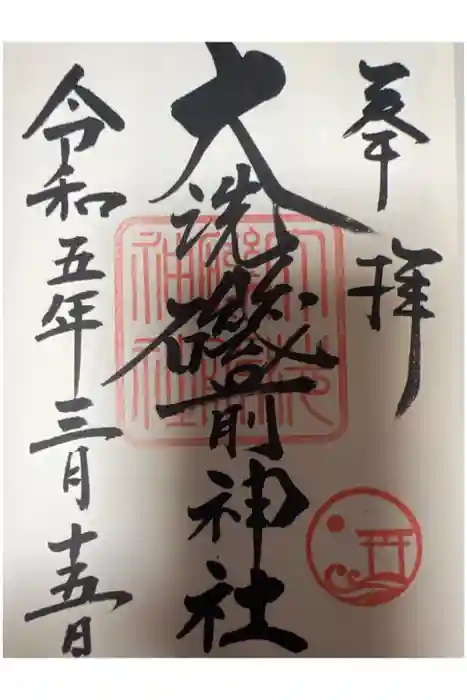 奉拝
大洗磯前神社
令和五年三月十五日